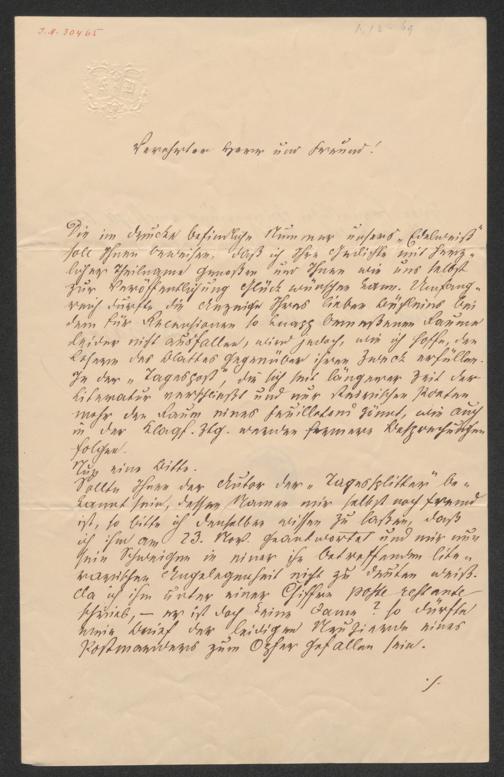 I.N. 30465
Verehrter Herr und Freund!
Die im Drucke befindliche Nummer unseres „Edelweiß"
soll Ihnen beweisen, daß ich Ihre Gedichte mit herz-
licher Theilname genoßen und Ihnen wie uns selbst
zur Veröffentlichung Glück wünschen kann. Umfang-
reich dürfte die Anzeige Ihres lieben Büchleins bei
dem für Recensionen so knapp bemessenen Raume
leider nicht ausfallen, wird jedoch, wie ich hoffe, den
Lesern des Blattes gegenüber ihren Zweck erfüllen.
In der „Tagespost", die sich seit längerer Zeit der
Literatur verschließt und nur
mehr den Raum eines Feuilletons gönnt, wie auch
in der Klagf. Ztg. werden fernere Besprechungen
folgen.
Nun eine Bitte.
Sollte Ihnen der Autor der „Tagessplitter" be-
kannt sein, dessen Namen mir selbst noch fremd
ist, so bitte ich denselben wissen zu laßen, daß
ich ihm am 23. Nov. geantwortet und mir nun
sein Schweigen in einer ihn betreffenden lite-
rarischen Angelegenheit nicht zu deuten weiß.
Da ich ihm unter einer Chiffre poste restante
schrieb, – er ist doch keine Dame? so dürfte
mein Brief der leidigen Neugierde eines
Postmarders zum Opfer gefallen sein.